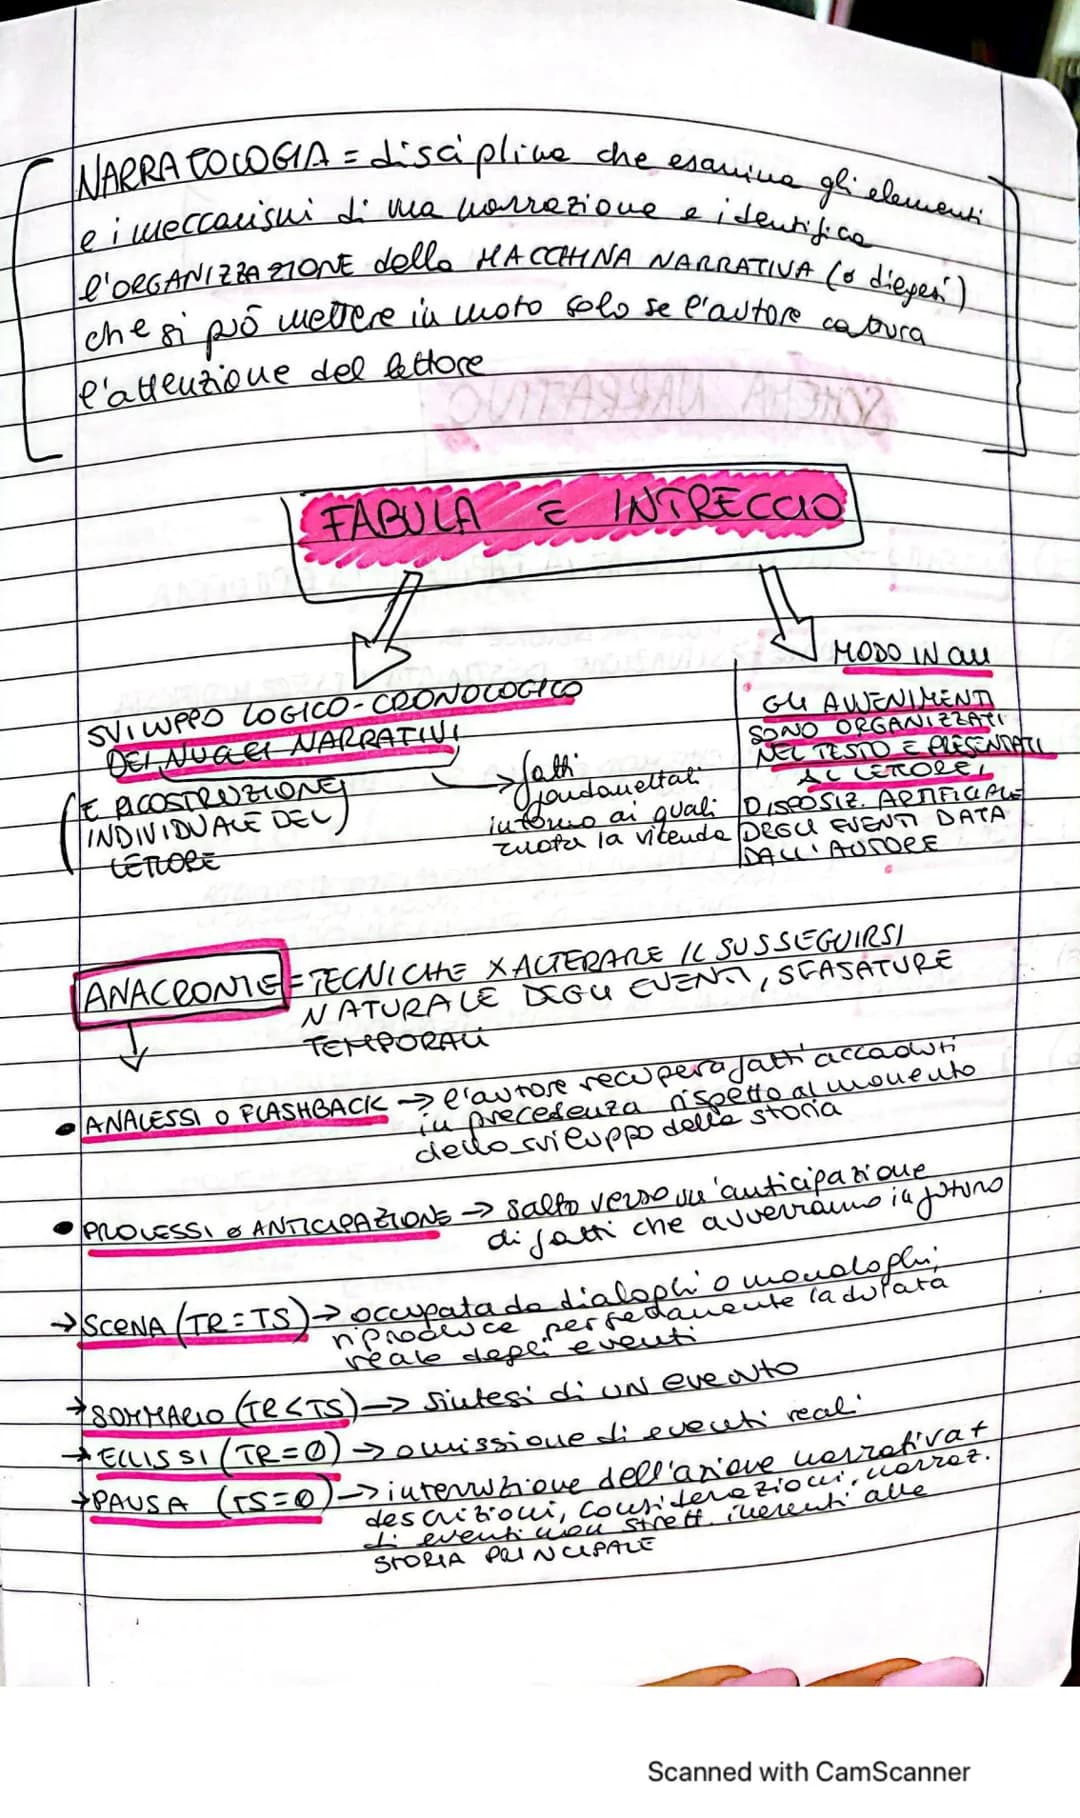 NARRATOLOGIA = disciplina che esamina gli elementi
e i meccanismi di una narrazione e identifica
l'ORGANIZZAZIONE della MACCHINA NARRATIVA (o diegesi)
che si può mettere in moto solo se l'autore cattura
l'attenzione del lettore
SCHEMA NARRATIVO
FABULA E INTRECCIO
SVILUPPO LOGICO-CRONOLOGICO
DEI NUCLEI NARRATIVI
(È RICOSTRUZIONE
INDIVIDUALE DEL)
LETTORE
fatti
fondamentali
intorno ai quali
ruota la vicenda
MODO IN CUI
GLI AVVENIMENTI
SONO ORGANIZZATI
NEL TESTO E PRESENTATI
AL LETTORE,
DISPOSIZ. ARTIFICIALE
DEGLI EVENTI DATA
DALL'AUTORE
ANACRONIE = TECNICHE X ALTERARE IL SUSSEGUIRSI
NATURALE DEGLI EVENTI, SFASATURE
TEMPORALI
• ANALESSI O FLASHBACK → l'autore recupera fatti accaduti
in precedenza rispetto al momento
dello sviluppo della storia
• PROLESSI o ANTICIPAZIONE → salto verso un'anticipazione
di fatti che avverranno in futuro
→ SCENA (TR=TS) → occupata da dialoghi o monologhi;
riproduce perfettamente la durata
reale degli eventi
→ SOMMARIO (TR<TS) → sintesi di UN evento
→ ELLISSI (TR=0) → omissione di eventi reali
→ PAUSA (TS=0) → interruzione dell'azione narrativa +
descrizioni, considerazioni, narraz.
di eventi non strett. inerenti alla
STORIA PRINCIPALE
Scanned with CamScanner